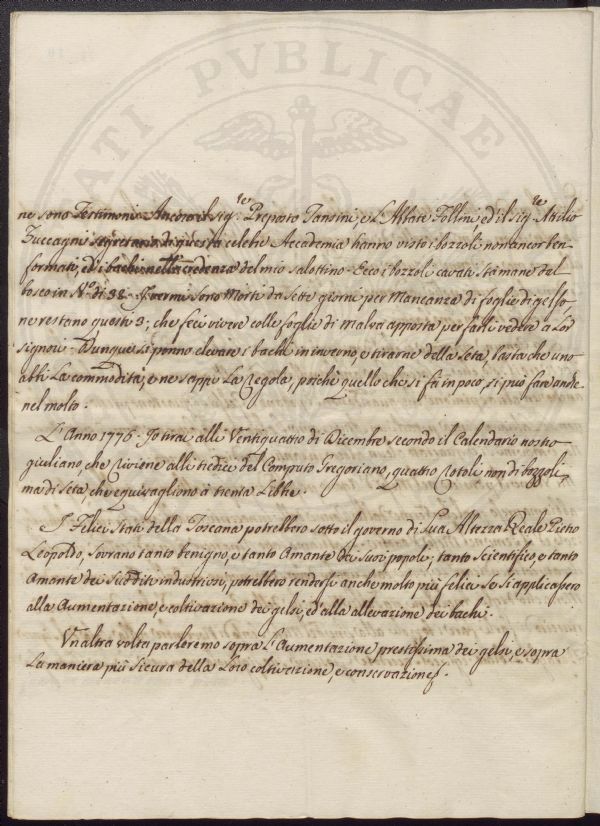 ATI PVBLICAE
ne sono Testimoni. Ancora il sig.re Preposto Tansini, e L'Abbate Follini, ed il sig.re Attilio
Zuccagni segretario di questa celebre Accademia hanno visto i bozzoli non ancor ben
formati, ed i bachi nella credenza del mio salottino. Ecco i bozzoli cavati stamane del
bosco in N.o di 38. I vermi sono Morti da sette giorni per Mancanza di foglie di gelso
ne restano questi 3; che feci vivere colle foglie di Malva apposta per farli vedere a Lor
signori. Dunque si ponno elevare i bachi in inverno, e tirarne della seta, basta che uno
abbi La commodità, e ne sappi La Regola, poichè quello che si fa in poco, si può fare anche
nel molto.
L'Anno 1776. Io tirai alli Ventiquattro di Dicembre secondo il Calendario nostro
giuliano, che Riviene alli tredici del Computo Gregoriano, quattro Rotoli non di bozzoli,
ma di seta, che equivagliono à trenta Libbre.
I Felici Stati della Toscana potrebbero sotto il governo di Sua Altezza Reale Pietro
Leopoldo, sovrano tanto benigno, e tanto Amante dei suoi popoli; tanto scientifico, e tanto
Amante dei sudditi industriosi, potrebbero rendersi anche molto più felici se si applicassero
alla Aumentazione, e coltivazione dei gelsi, ed alla allevazione dei bachi.
Un altra volta parleremo sopra L'Aumentazione prestissima dei gelsi, e sopra
La maniera più sicura della Loro coltivazione, e conservazione.